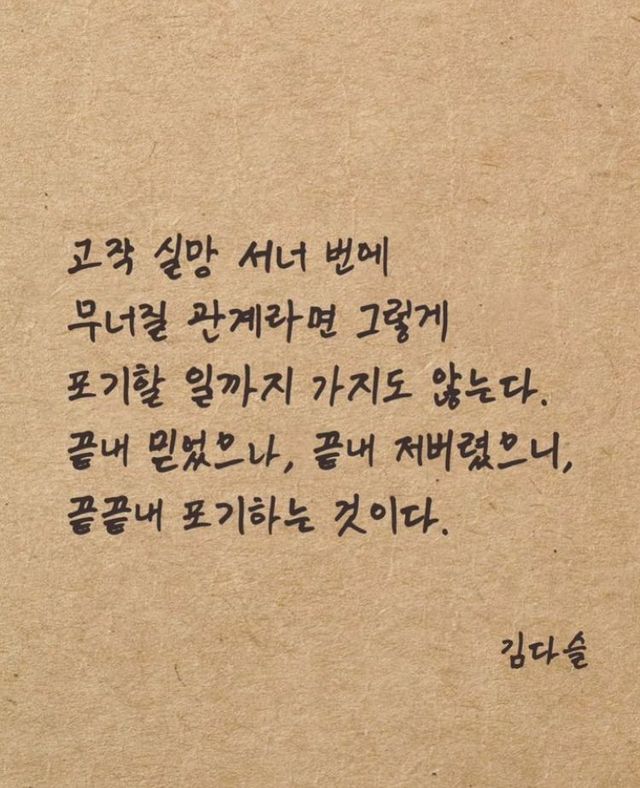 고작 실망 서너 번에
무너질 관계라면 그렇게
포기할 일까지 가지도 않는다.
끝내 믿었으나, 끝내 저버렸으니,
끝끝내 포기하는 것이다.
김다슬